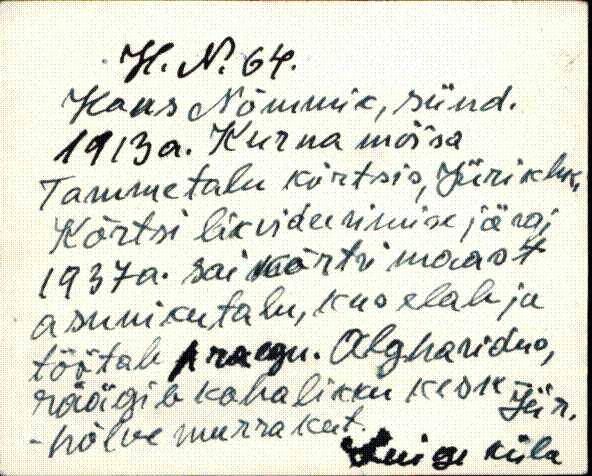 H. N. 64.
Hans Nõmmik, sünd.
1913 a. Kurna mõisa
Tammetalu kõrtsis, Jüri khk.
Kõrtsi likvideerimise järgi
1937 a. sai kõrtsi maast
asunikutalu, kus elab ja
töötab praegu. Algharidus,
räägib kohalikku kesk Jür.
-põlve murrakut.
küla